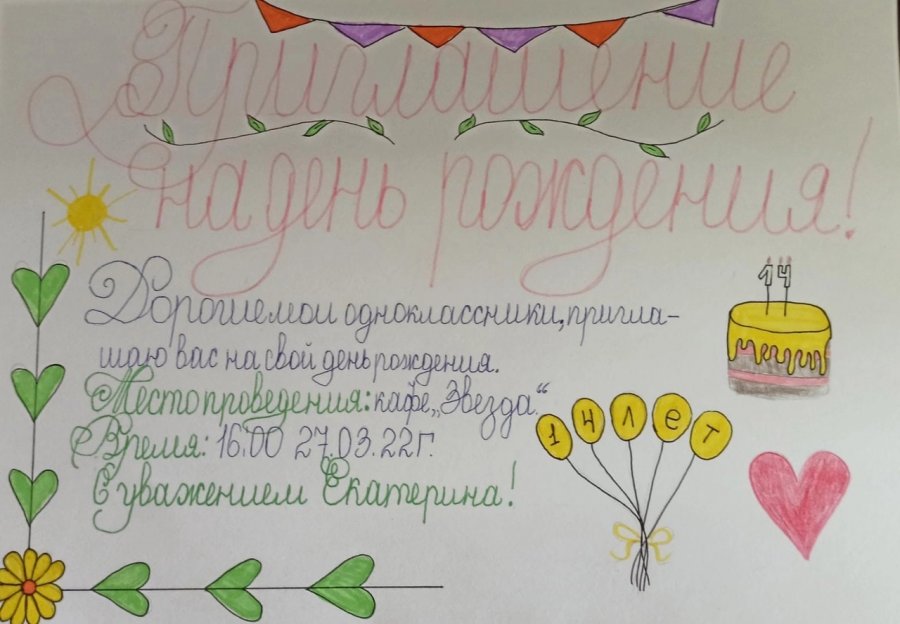 Приглашение
на день рождения!
Дорогие мои одноклассники, пригла-
шаю вас на свой день рождения.
Место проведения: кафе „Звезда“.
Время: 16.00 27.03.22г.
С уважением Екатерина!
14
14 лет